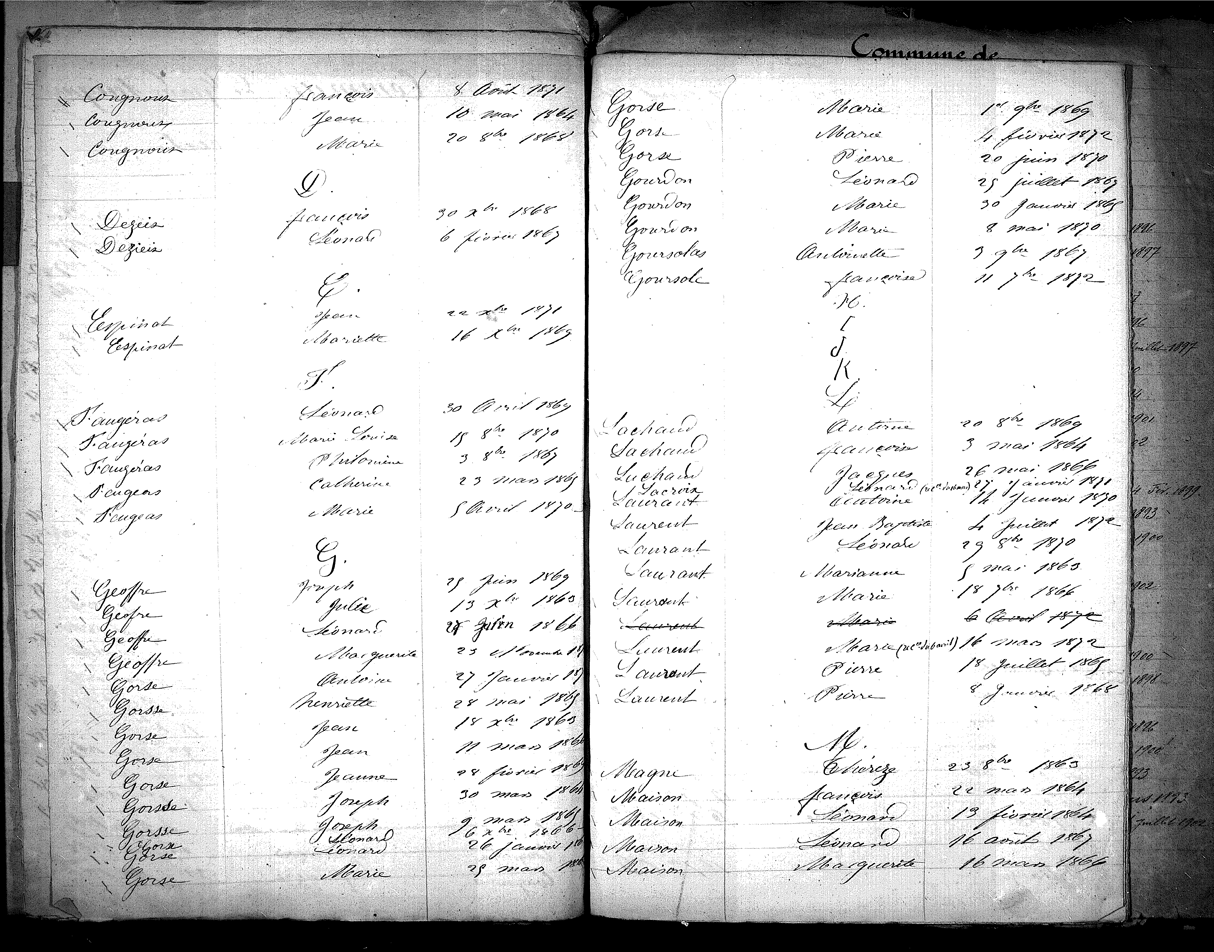 Congnoux françois 8 Août 1871
Congnoux Jean 10 mai 1864
Congnoux Marie 20 8bre 1868
D.
Dezeis françois 30 xbre 1868
Dezieis Léonard 6 février 1867
E.
Espinat Jean 22 xbre 1871
Espinat Mariette 16 xbre 1869
F.
Faugéras Léonard 30 Avril 1869
Faugéras Marie Louise 15 8bre 1870
Faugéras Philomène 3 8bre 1867
Faugeas Catherine 23 mars 1865
Faugeas Marie 5 Avril 1870
G.
Geoffre Joseph 25 Juin 1869
Geofre Julie 13 xbre 1863
Geoffre Léonard 27 Juin 1866
Geoffre Marguerite 23 Novembre
Gorse Antoine 27 Janvier
Gorsse Henriette 28 mai 1865
Gorse Jean 18 xbre 1863
Gorse Jean 11 mars
Gorse Jeanne 28 février
Gorsse Joseph 30 mars
Gorsse Joseph 9 mars
Gorse Léonard 6 xbre 1866
Gorse Léonard 26 janvier
Gorse Marie 25 mars
Commune de
Gorse Marie 1er 9bre 1869
Gorse Marie 4 février 1872
Gorse Pierre 20 juin 1870
Gourdon Léonard 25 juillet 1867
Gourdon Marie 30 Janvier 1865
Gourdon Marie 2 mai 1870
Goursolas Antoinette 3 9bre 1867
Goursole françoise 11 7bre 1872
H.
I
J
K
L
Lachaud Antoine 20 8bre 1869
Lachaud françoise 3 mai 1864
Lachaud Jacques 26 mai 1866
Lacroix Léonard 27 Janvier 1871
Laurant Antoine 14 Janvier 1870
Laurent Jean Baptiste 4 Juillet 1872
Laurant Léonard 29 8bre 1870
Laurant Marianne 5 mai 1863
Laurant Marie 18 7bre 1866
Laurent Marie 6 Avril 1872
Laurent Marie 16 mars 1872
Laurant Pierre 18 Juillet 1865
Laurent Pierre 8 Janvier 1868
M.
Magne Thérèze 23 8bre 1863
Maison françois 22 mars 1864
Maison Léonard 13 février 1864
Maison Léonard 16 août 1867
Maison Marguerite 16 mars 1866